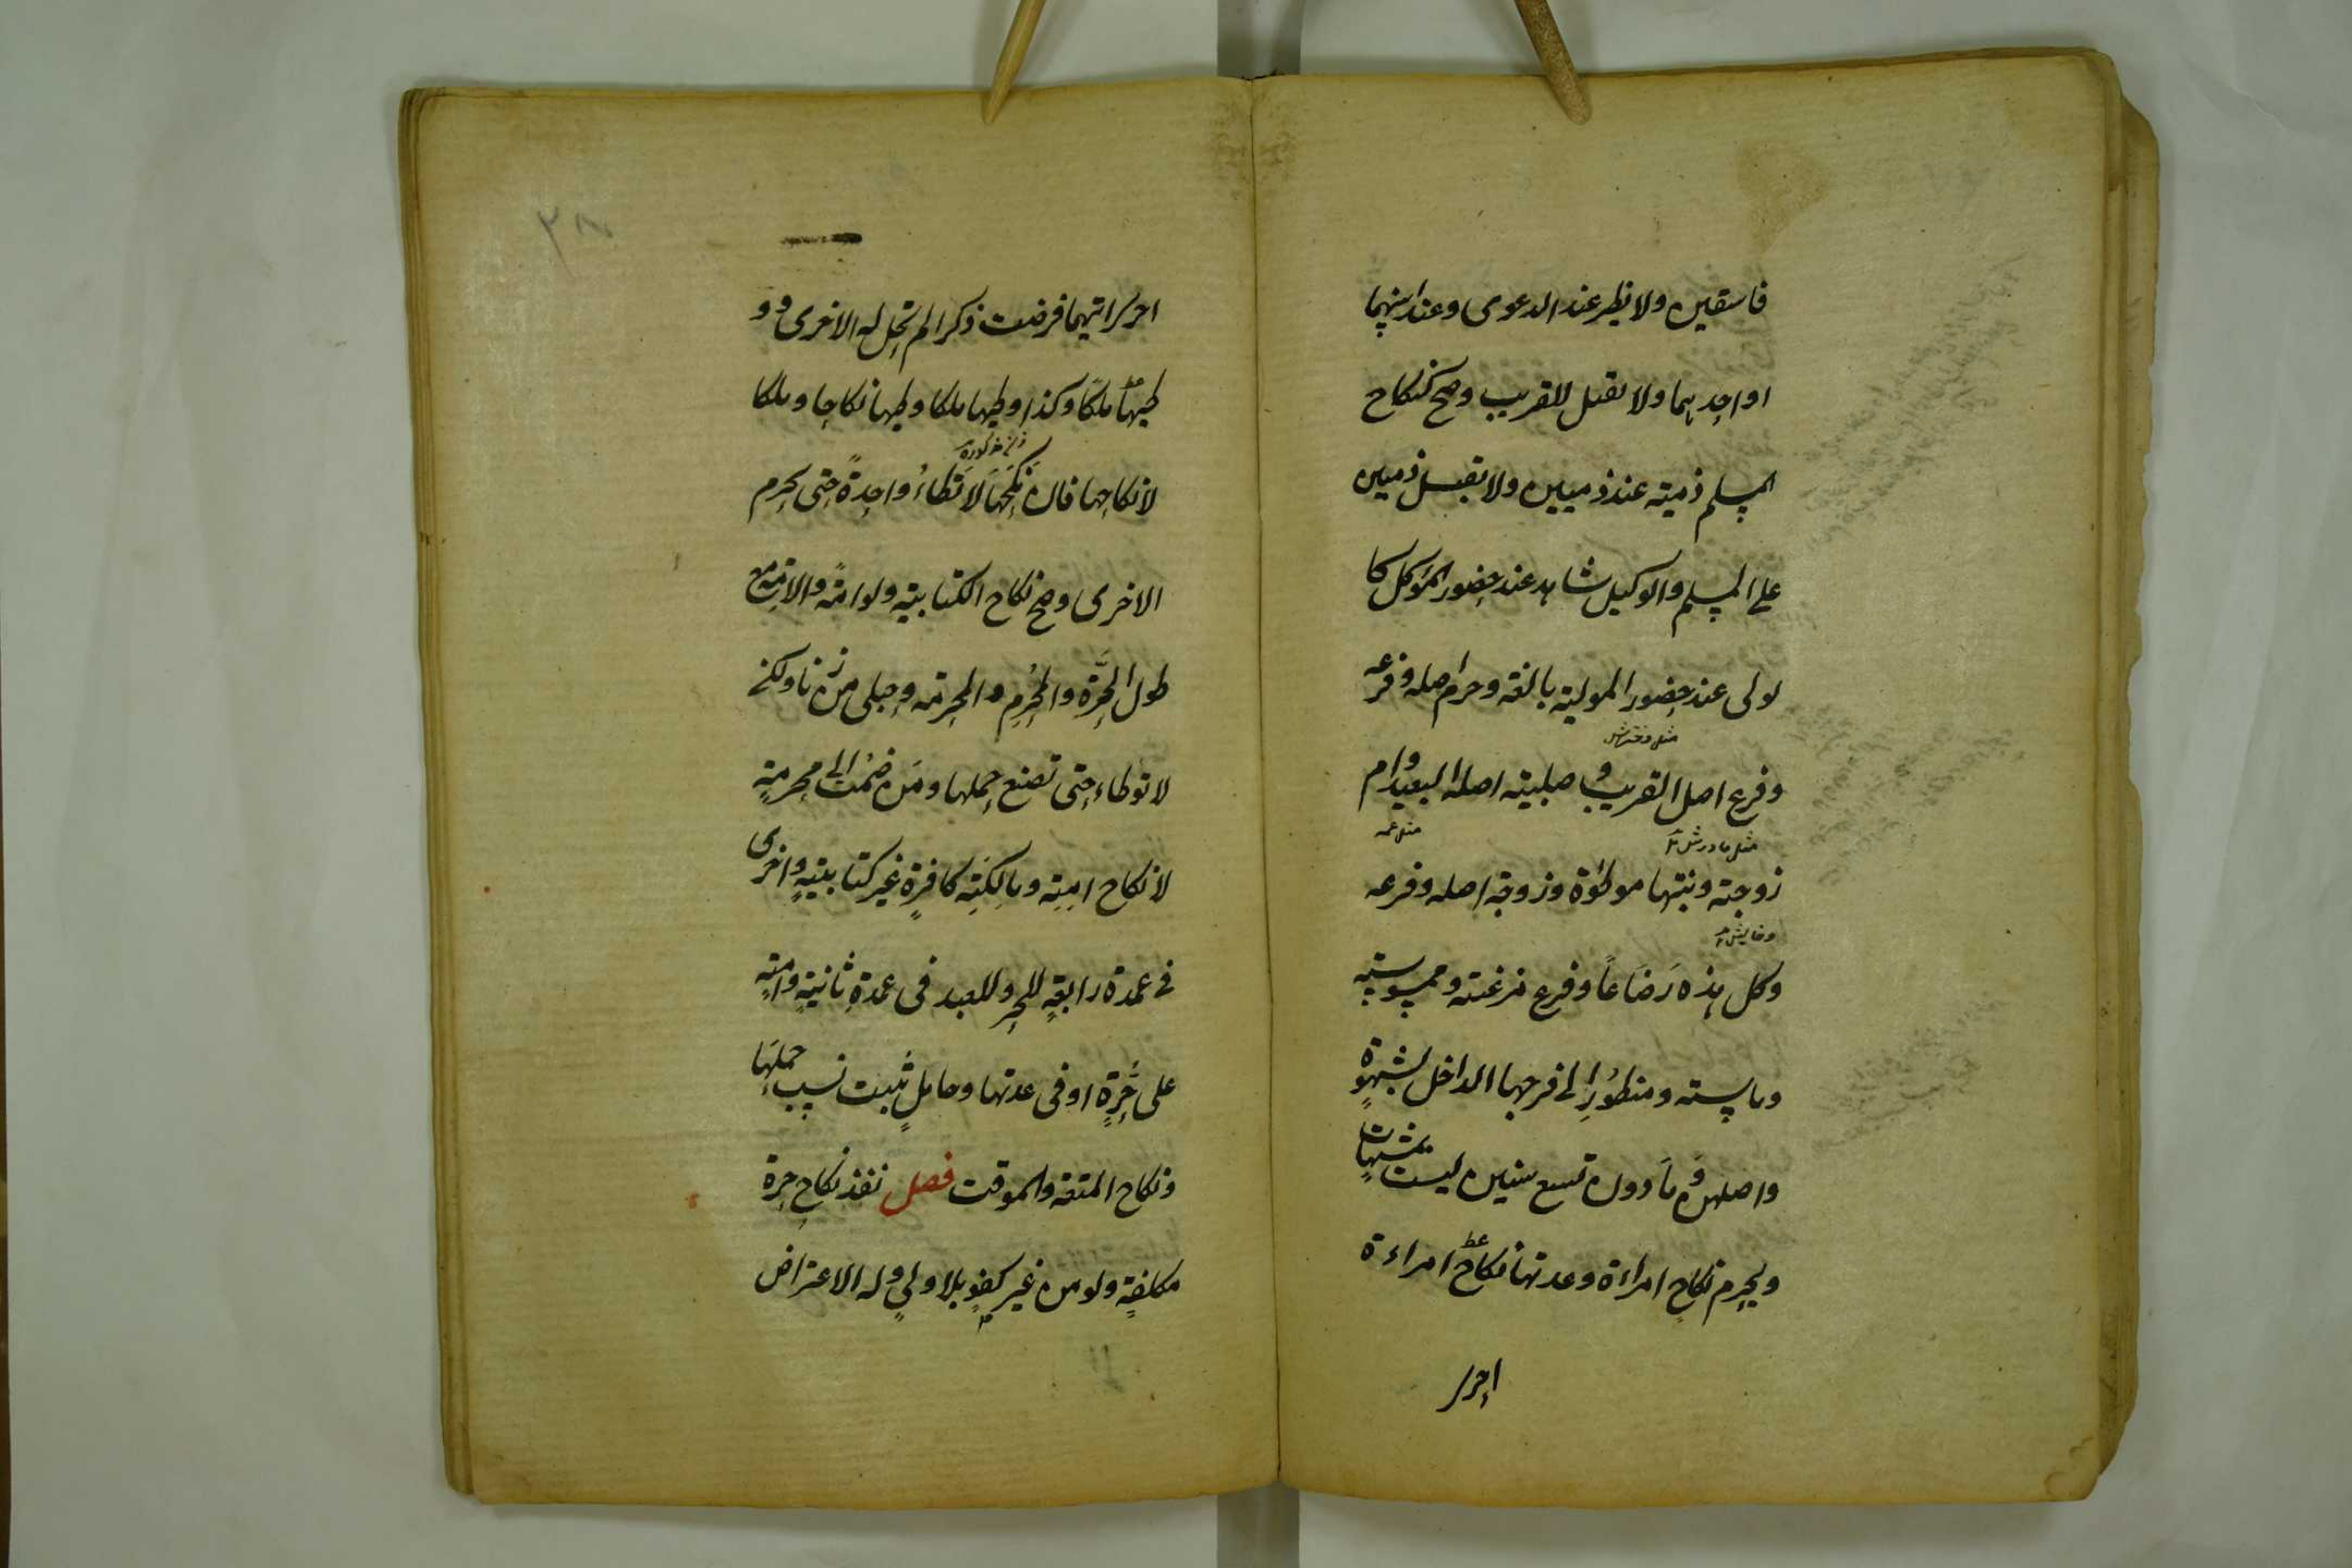 فاسقين ولا يظهر عند الدعوى وعند ابنيهما
او احدهما ولا تقبل للقريب وصح كنكاح
المسلم ذمية عند ذميين ولا يقبل ذميين
على المسلم والوكيل شاهد عند حضور الموكل كا
لولى عند حضور المولية بالغة وحرم اصله وفرعه
مثل دختر
وفرع اصل القريب وصلبية اصله البعيد وام
مثل عمه
مثل مادرش
زوجته وبنتها موطؤة وزوجة اصله وفرعه
وكل هذه رضاعًا وفرع مزنيته وممسوسته
وماسته ومنظور الى فرجها الداخل بشهوةٍ
واصلهن وما دون تسع سنين ليست بمشتهاتٍ
ويحرم نكاح امراءة وعدتها نكاح امراءة
احدى
٣٨
احدى ايتهما فرضت ذكرا لم تحل له الاخرى وو
طيها ملكًا وكذا وطيها ملكا وطيها نكاحا وملكا
لا نكاحها فان نكحها لا تطاء واحدةً حتى يحرم
الاخرى وصح نكاح الكتابية ولو امةً والامة مع
طول الحرّة والمحرم والمحرمة وحبلى من زنا ولكن
لا توطاء حتى تضع حملها ومن ضمت الى محرمةٍ
لا نكاح امته ومالكته كافرةٍ غير كتابيةٍ واخرى
فى عدة رابعةٍ للحر وللعبد فى عدة ثانيةٍ وامةٍ
على حرةٍ او فى عدتها وحاملٍ ثبت نسب حملها
ونكاح المتعة والموقت فصل نفذ نكاح حرة
مكلفةٍ ولو من غير كفوٍ بلا ولي وله الاعتراض